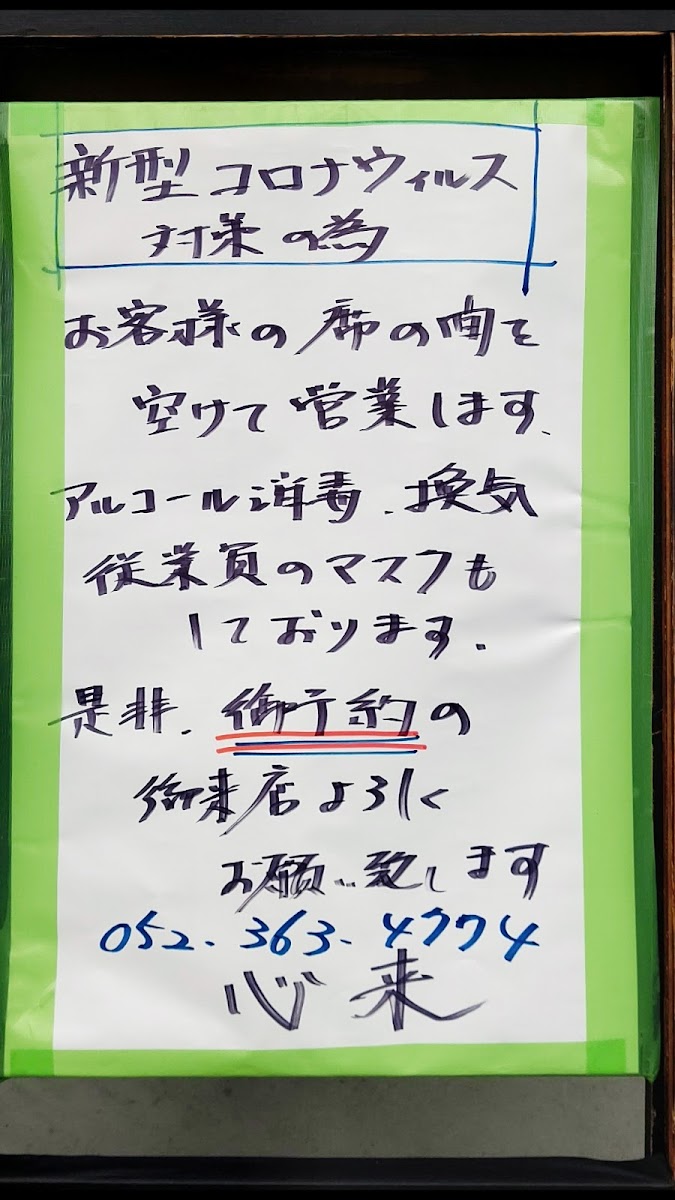 新型コロナウィルス
対策の為
お客様の席の間を
空けて営業します、
アルコール消毒、換気
従業員のマスクも
しております。
是非、御予約の
御来店よろしく
お願い致します
052-363-4774
心来